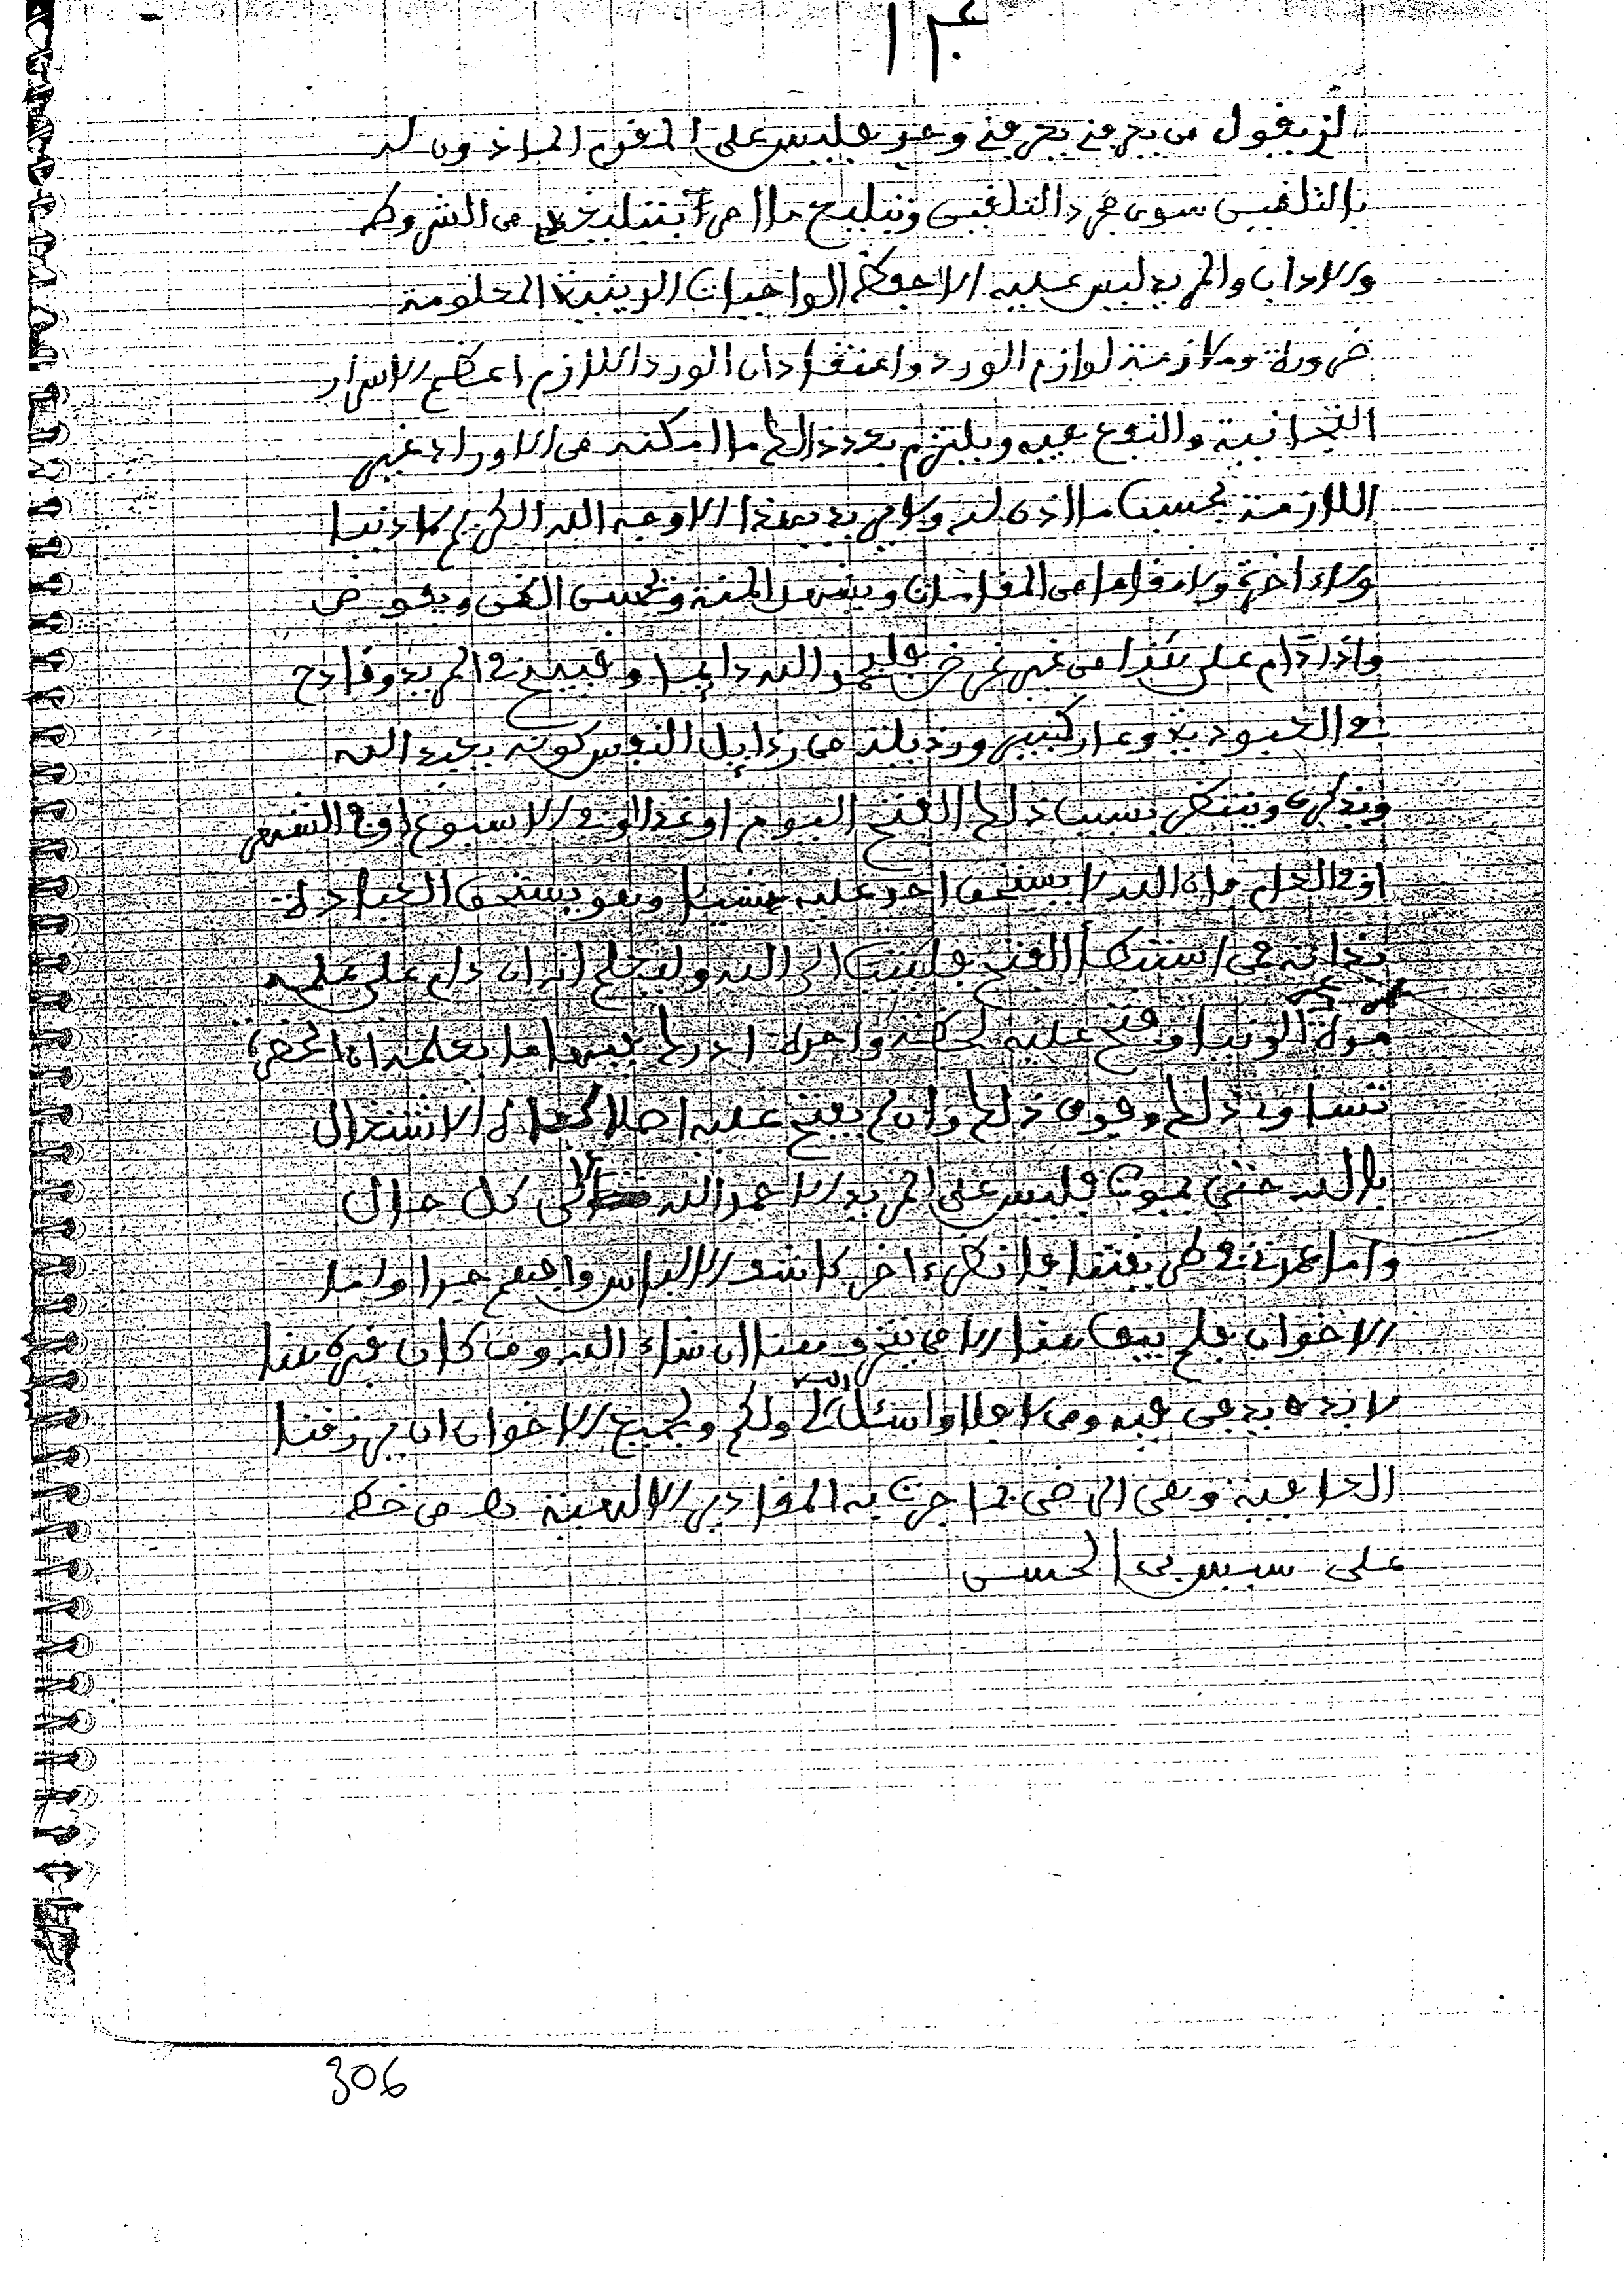 يقول من يعرفني يعرفني وعد فليس على المقدم الماذون له
بالتلقين سوى مجرد التلقين وتبليغ ما امر بتبليغه من الشروط
والاداب والمريد ليس عليه الا حفظ الواجبات الدينية المعلومة
ضرورة وملازمة لوازم الورد واعتقاد ان الورد اللازم اعظم الاسرار
التجانية والنفع فيه ويلتزم بعد ذالك ما امكنه من الاوراد غير
اللازمة بحسب ما اذن له ولا يريد بهذا الا وجه الله الكريم لا دنيا
ولا ءاخرة ولا مقاما من المقامات ويشهد المنة ويحسن الظن ويفوض
واذا دام على هذا من غير غرض فليحمد الله دايما وقبيح في المريد وقادح
في العبودية وعار كبير ورذيلة من رذايل النفس كونه يعبد الله
ويذكره وينتظر بسبب ذلك الفتح اليوم او غدا او في الاسبوع او في الشهر
او في العام فان الله لا يستحق احد عليه شيئا وهو يستحق العبادة
لذاته فمن استبطأ الفتح فليتب الى الله وليعلم انه ان دام على عمله
مدة الدنيا وفتح عليه لحظة واحدة ادرك فيها ما يعلمه ان الحضرة
تساوي ذلك وفوق ذلك وان لم يفتح عليه اصلا كفاه الاشتغال
بالله حتى يموت فليس على المريد الا حمد الله على كل حال
واما عمرتي في طريقنا فانظر ءاخر كاشف الالباس وافهم جيدا واما
الاخوان فلم يبق هنا الا من يتزوج هنا ان شاء الله ومن كان قبره هنا
لا بد يدفن فيه ومن لا فلا واسئل الله لي ولكم ولجميع الاخوان ان يرزقنا
العافية وهي الرضى بما جرت به المقادير الالهية من خط
على سيس بن الحسن
306